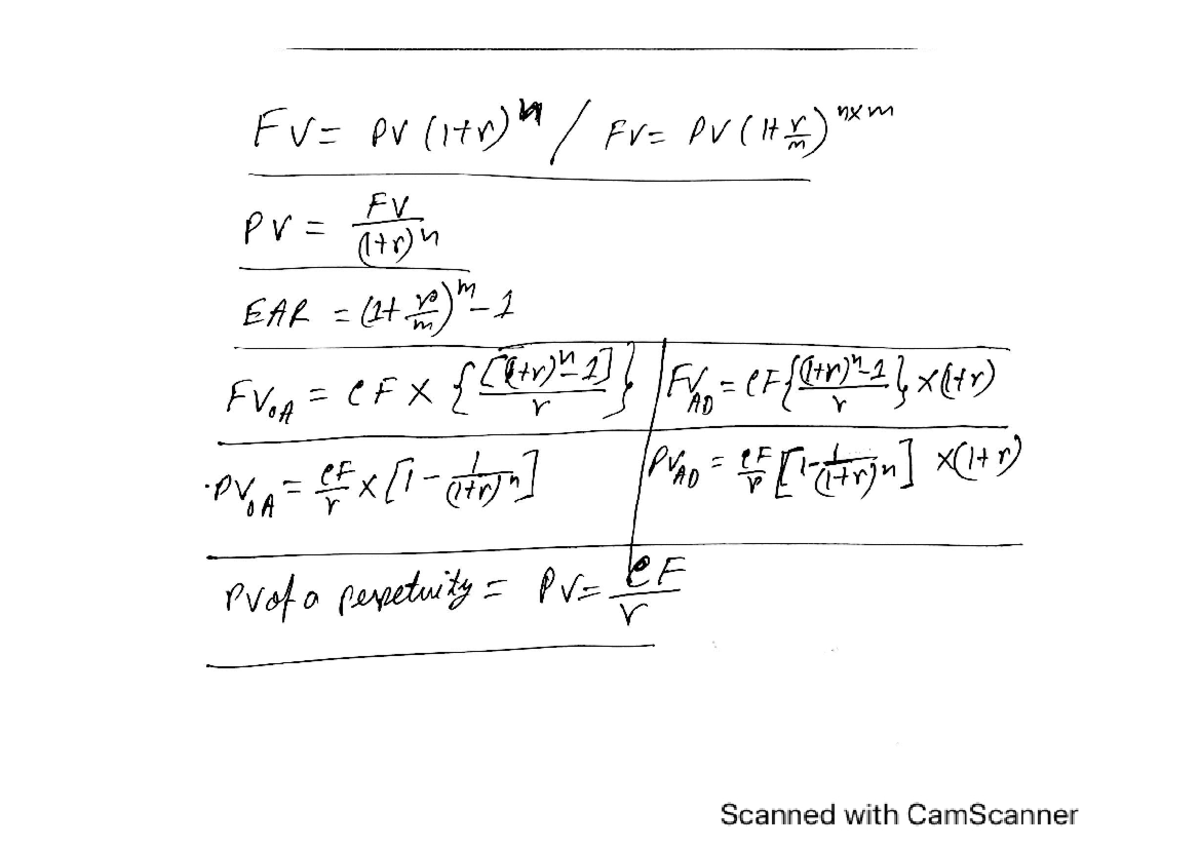 FV = PV (1+r)^n / FV = PV (1+ r/m)^n×m
PV = FV/(1+r)^n
EAR = (1+ r/m)^m - 1
FV_OA = CF × {[(1+r)^n - 1]/r} | FV_AD = CF {(1+r)^n - 1/r} × (1+r)
PV_OA = CF/r × [1 - 1/(1+r)^n] | PV_AD = CF/r [1 - 1/(1+r)^n] × (1+r)
PV of a perpetuity = PV = CF/r
Scanned with CamScanner